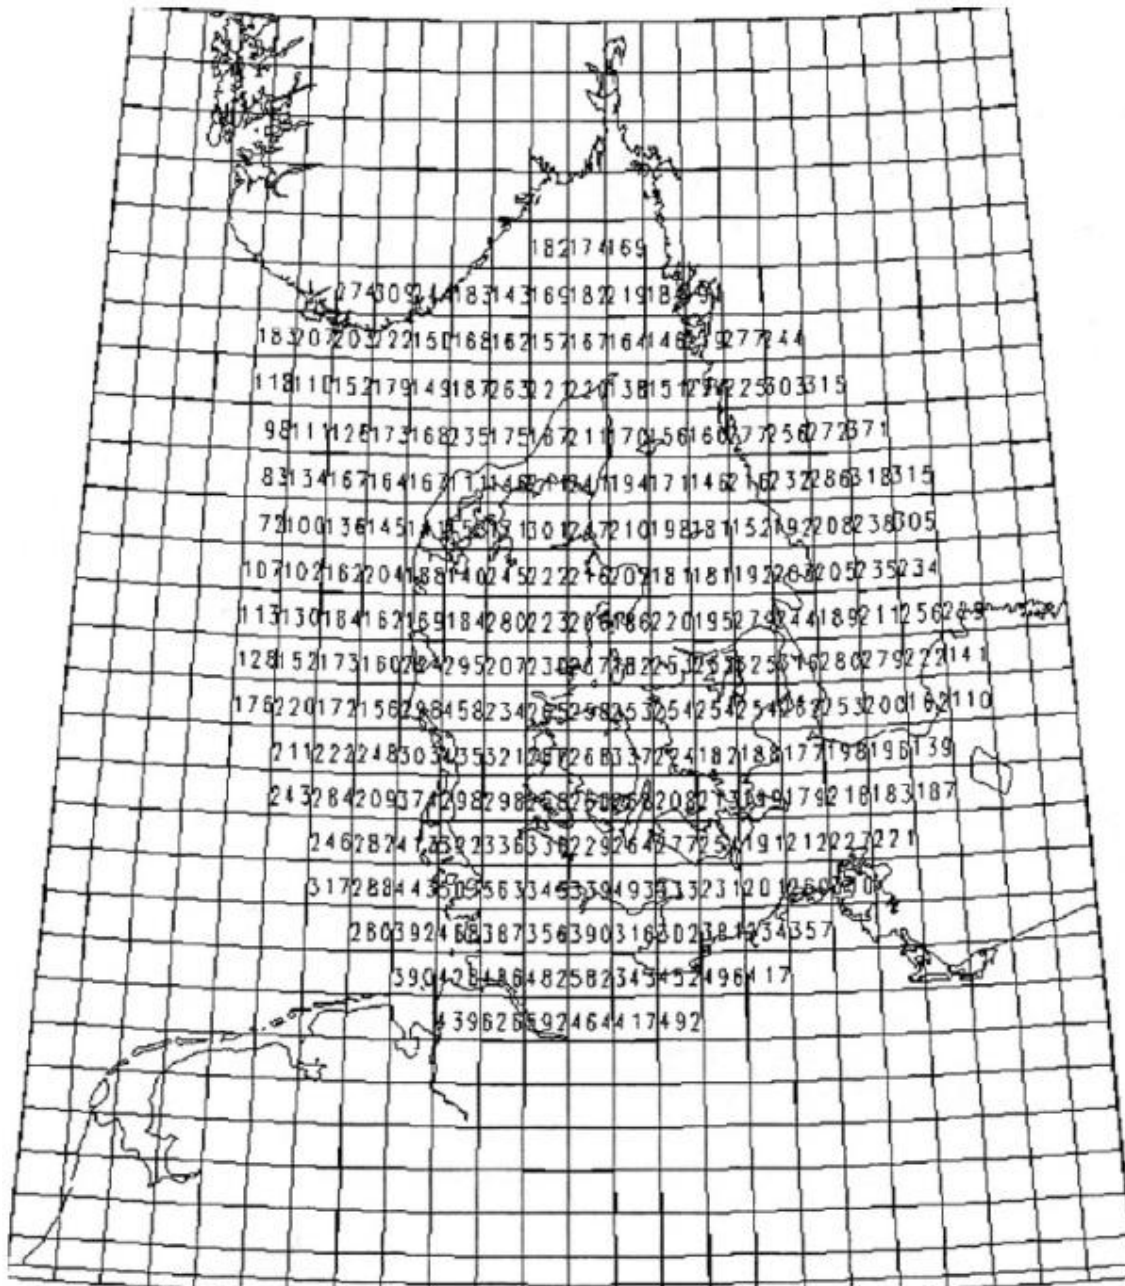 182 174 169
274 309 183 143 169 182 219
183 207 203 222 150 168 162 157 167 164 146 277 244
118 110 152 179 149 187 263 221 220 138 151 225 303 315
98 111 126 173 168 235 175 167 211 170 156 160 277 256 272 371
83 134 167 164 167 111 146 241 194 171 146 216 232 286 318 315
72 100 136 145 171 301 247 210 198 181 152 192 208 238 305
107 102 162 204 188 140 245 222 216 209 181 181 192 203 205 235 234
113 130 184 162 169 184 280 223 206 186 220 195 279 244 189 211 256
128 152 173 160 284 295 207 230 253 316 280 279 222 141
176 220 172 156 298 458 234 265 258 253 254 254 254 262 253 200 162 110
211 222 248 303 321 287 268 337 224 182 188 177 198 196 139
243 284 209 374 298 298 268 260 208 213 199 179 218 183 187
246 282 336 338 229 264 277 254 191 212 227 221
317 288 443 563 345 339 493 333 231 201 260
280 392 468 387 356 390 316 302 381 234 357
390 428 486 482 582 345 452 496 417
439 626 592 464 417 492